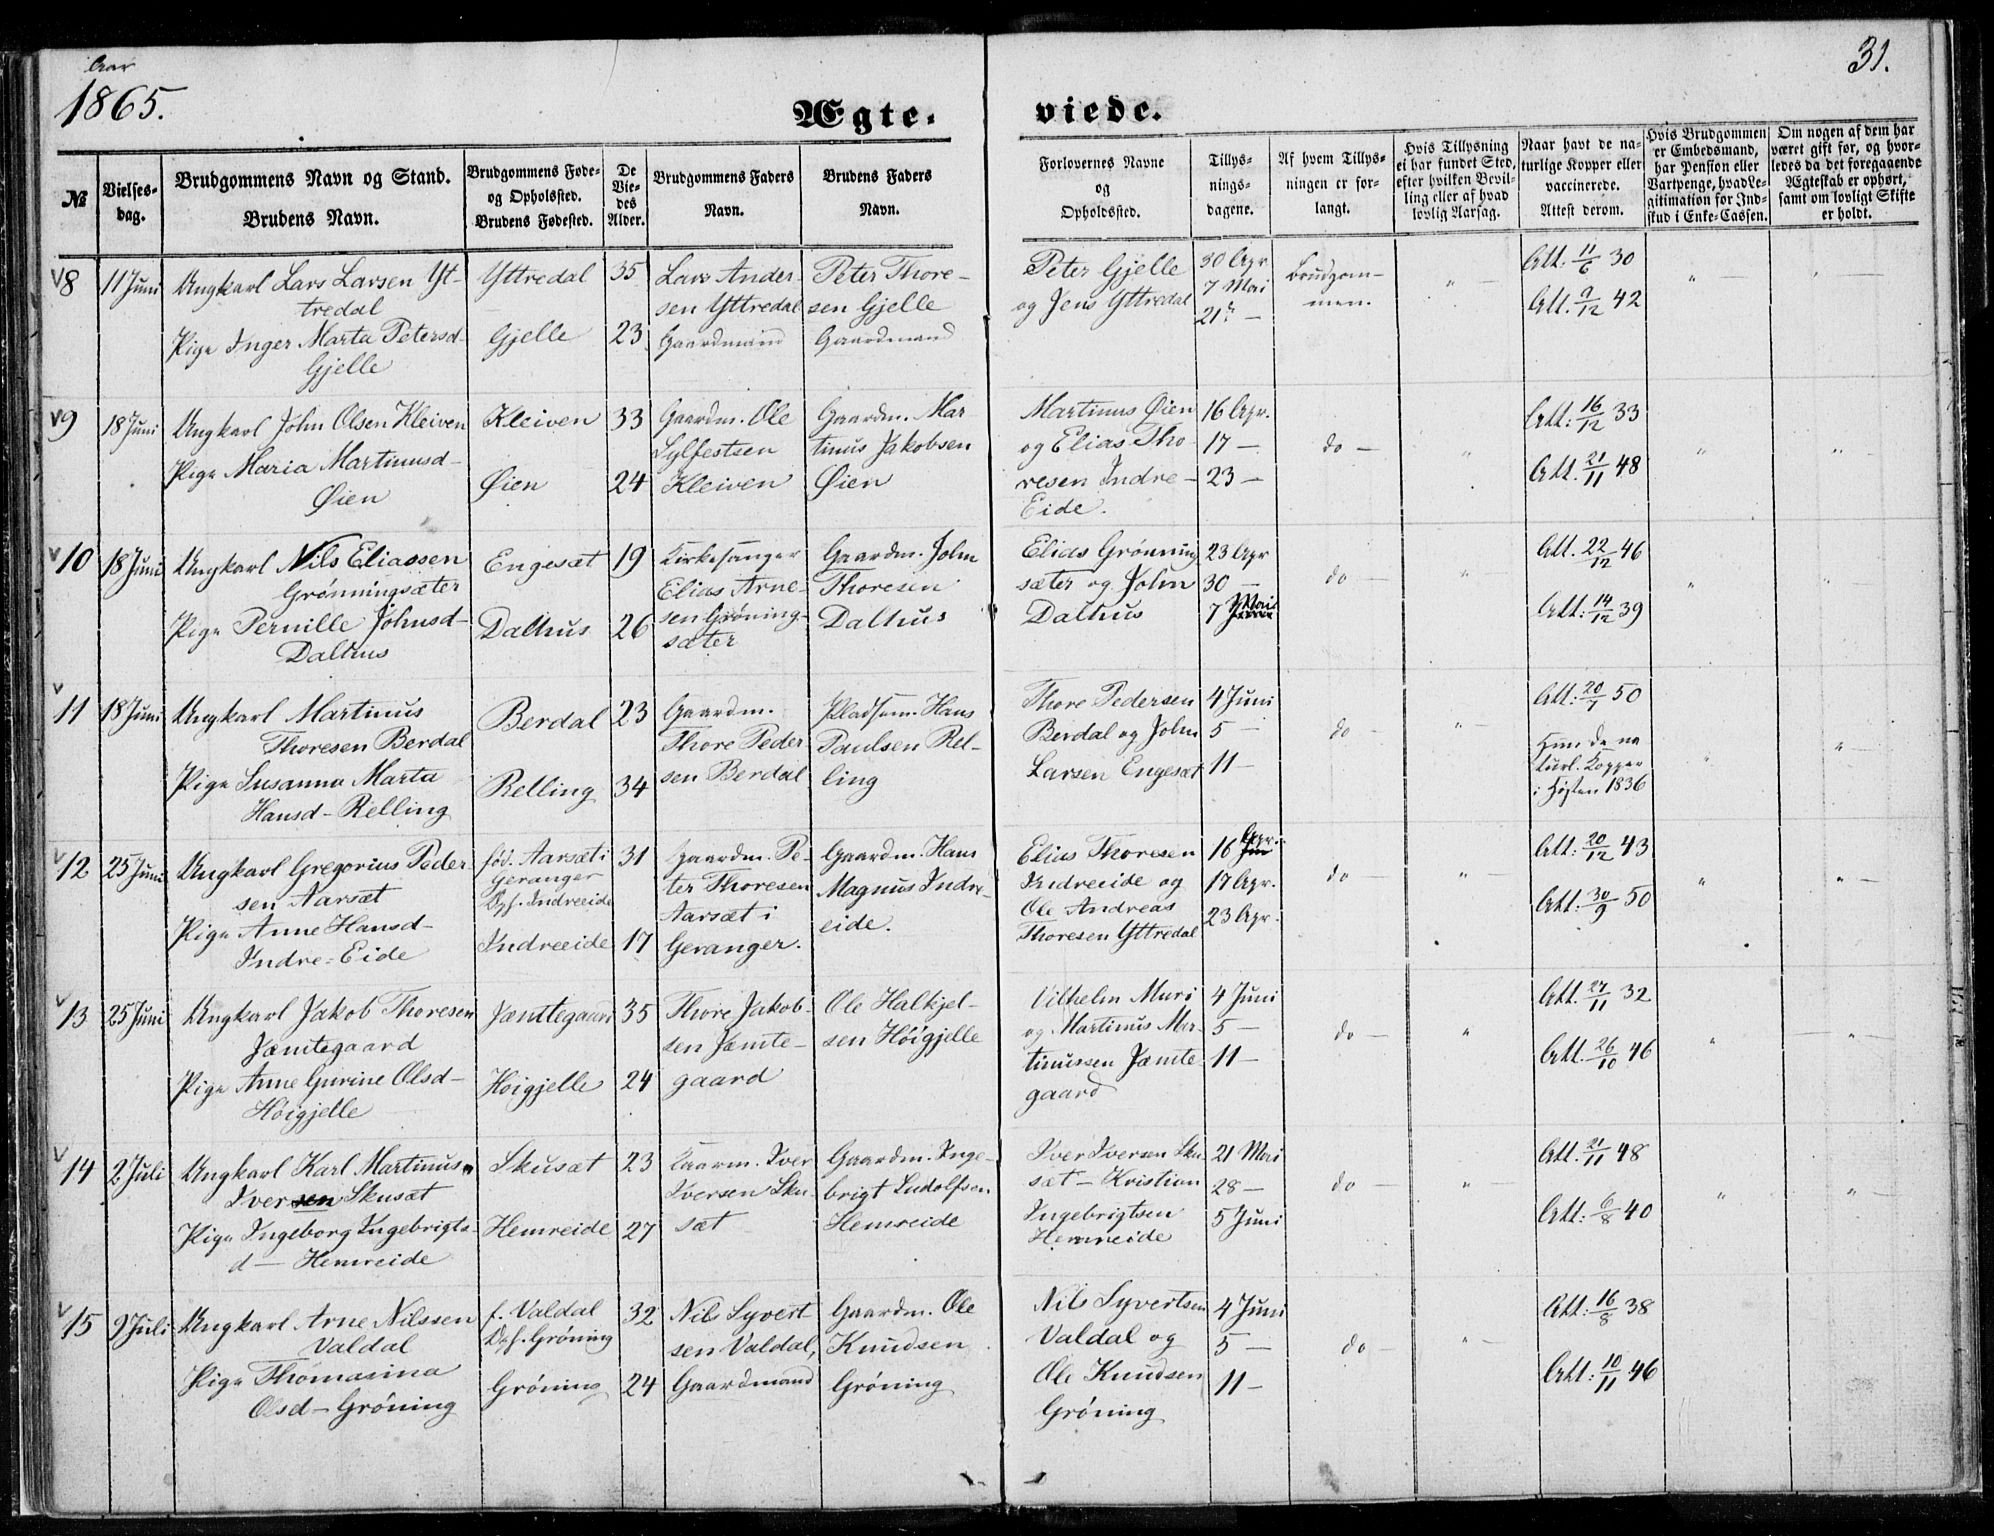 Aar
1865.
31.
Ægte-
viede.
№
Vielses-
dag.
Brudgommens Navn og Stand.
Brudens Navn.
Brudgommens Føde-
og Opholdssted.
Brudens Fødested.
De
Vie-
des
Alder.
Brudgommens Faders
Navn.
Brudens Faders
Navn.
Forlovernes Navne
og
Opholdssted.
Tillys-
nings-
dagene.
Af hvem Tillys-
ningen er for-
langt.
Hvis Tillysning
ei har fundet Sted,
efter hvilken Bevil-
ling eller af hvad
lovlig Aarsag.
Naar havt de na-
turlige Kopper eller
vaccinerede.
Attest derom.
Hvis Brudgommen
er Embedsmand,
har Pension eller
Vartpenge, hvad Le-
gitimation for Ind-
skud i Enke-Cassen.
Om nogen af dem har
været gift før, og hvor-
ledes da det foregaaende
Ægteskab er ophørt,
samt om lovligt Skifte
er holdt.
v8
11 Juni
Ungkarl Lars Larsen Yt-
tredal
Pige Inger Marta Petersd-
Gjelle
Yttredal
Gjelle
35
23
Lars Ander-
sen Yttredal
Gaardmand
Peter Thore-
sen Gjelle
Gaardmand
Peter Gjelle
og Jens Yttredal
30 Apr
7 Mai
21 -
Brudgom-
men.
" -
Att. 11/6 30
Att. 9/12 42
" -
" -
v9
18 Juni
Ungkarl John Olsen Kleiven
Pige Maria Martinusd-
Øien
Kleiven
Øien
33
24
Gaardm. Ole
Sylfestsen
Kleiven
Gaardm. Mar
tinus Jakobsen
Øien
Martinus Øien
og Elias Tho-
resen Indre-
Eide.
16 Apr.
17 -
23 -
do -
"
Att: 16/12 33
Att. 21/11 48
"
" -
v10
18 Juni
Ungkarl Nils Eliassen
Grønningsæter
Pige Pernille Johnsd-
Dalhus
Engesæt
Dalhus
19
26
Kirkesanger
Elias Arne-
sen Grøning-
sæter
Gaardm. John
Thoresen
Dalhus
Elias Grønning
sæter og John
Dalhus
23 Apr
30 -
7 Mai
do -
" -
Att. 22/12 46
Att: 14/12 39
"
"
v
11
18 Juni
Ungkarl Martinus
Thoresen Berdal
Pige Susanna Marta
Hansd- Relling
Berdal
Relling
23
34
Gaardm.
Thore Peder
sen Berdal
Pladsm. Hans
Paulsen Rel-
ling
Thore Pedersen
Berdal og John
Larsen Engesæt
4 Juni
5 -
11 -
do -
" -
Att: 20/7 50
Hun de na
turl. Kopper
i Høsten 1836
"
" -
v12
25 Juni
Ungkarl Gregorius Peder
sen Aarsæt
Pige Anne Hansd-
Indre-Eide
fød. Aarsæt i
Geranger
Opf. Indreeide
Indreeide
31
17
Gaardm. Pe-
ter Thoresen
Aarsæt i
Geranger.
Gaardm. Hans
Magnus Indre-
eide.
Elias Thoresen
Indreeide og
Ole Andreas
Thoresen Yttredal
16 Apr.
17 Apr.
23 Apr.
do -
" -
Att: 20/12 43
Att: 30/9 50
"
" -
v13
25 Juni
Ungkarl Jakob Thoresen
Jæmtegaard
Pige Anne Gurine Olsd-
Høigjelle
Jæmtegaard
Høigjelle
35
24
Thore Jakob-
sen Jæmte-
gaard
Ole Halkjel-
sen Høigjelle
Vilhelm Muri
og Martinus Mar-
tinussen Jæmte-
gaard
4 Juni
5 -
11 -
do -
"
Att. 27/11 32
Att. 26/10 46
"
- " -
v14
2 Juli
Ungkarl Karl Martinus
Iversen Skusæt
Pige Ingeborg Ingebrigts-
d- Hemreide
Skusæt
Hemreide
23
27
Gaarm. Iver
Iversen Sku-
sæt
Gaardm. Inge-
brigt Ludolfsen
Hemreide
Iver Iversen Sku
sæt - Kristian
Ingebrigtsen
Hemreide
21 Mai
28 -
5 Juni
do -
" -
Att. 21/11 48
Att: 6/8 40
"
" -
v15
9 Juli
Ungkarl Arne Nilssen
Valdal
Pige Thomasina
Olsd- Grøning
f. Valdal
Opf. Grøning
Grøning
32
24
Nils Syvert
sen Valdal,
Gaardmand
Gaardm. Ole
Knudsen
Grøning
Nils Syvertsen
Valdal og
Ole Knudsen
Grøning
4 Juni
5 -
11 -
do
" -
Att: 16/8 38
Att: 10/11 46